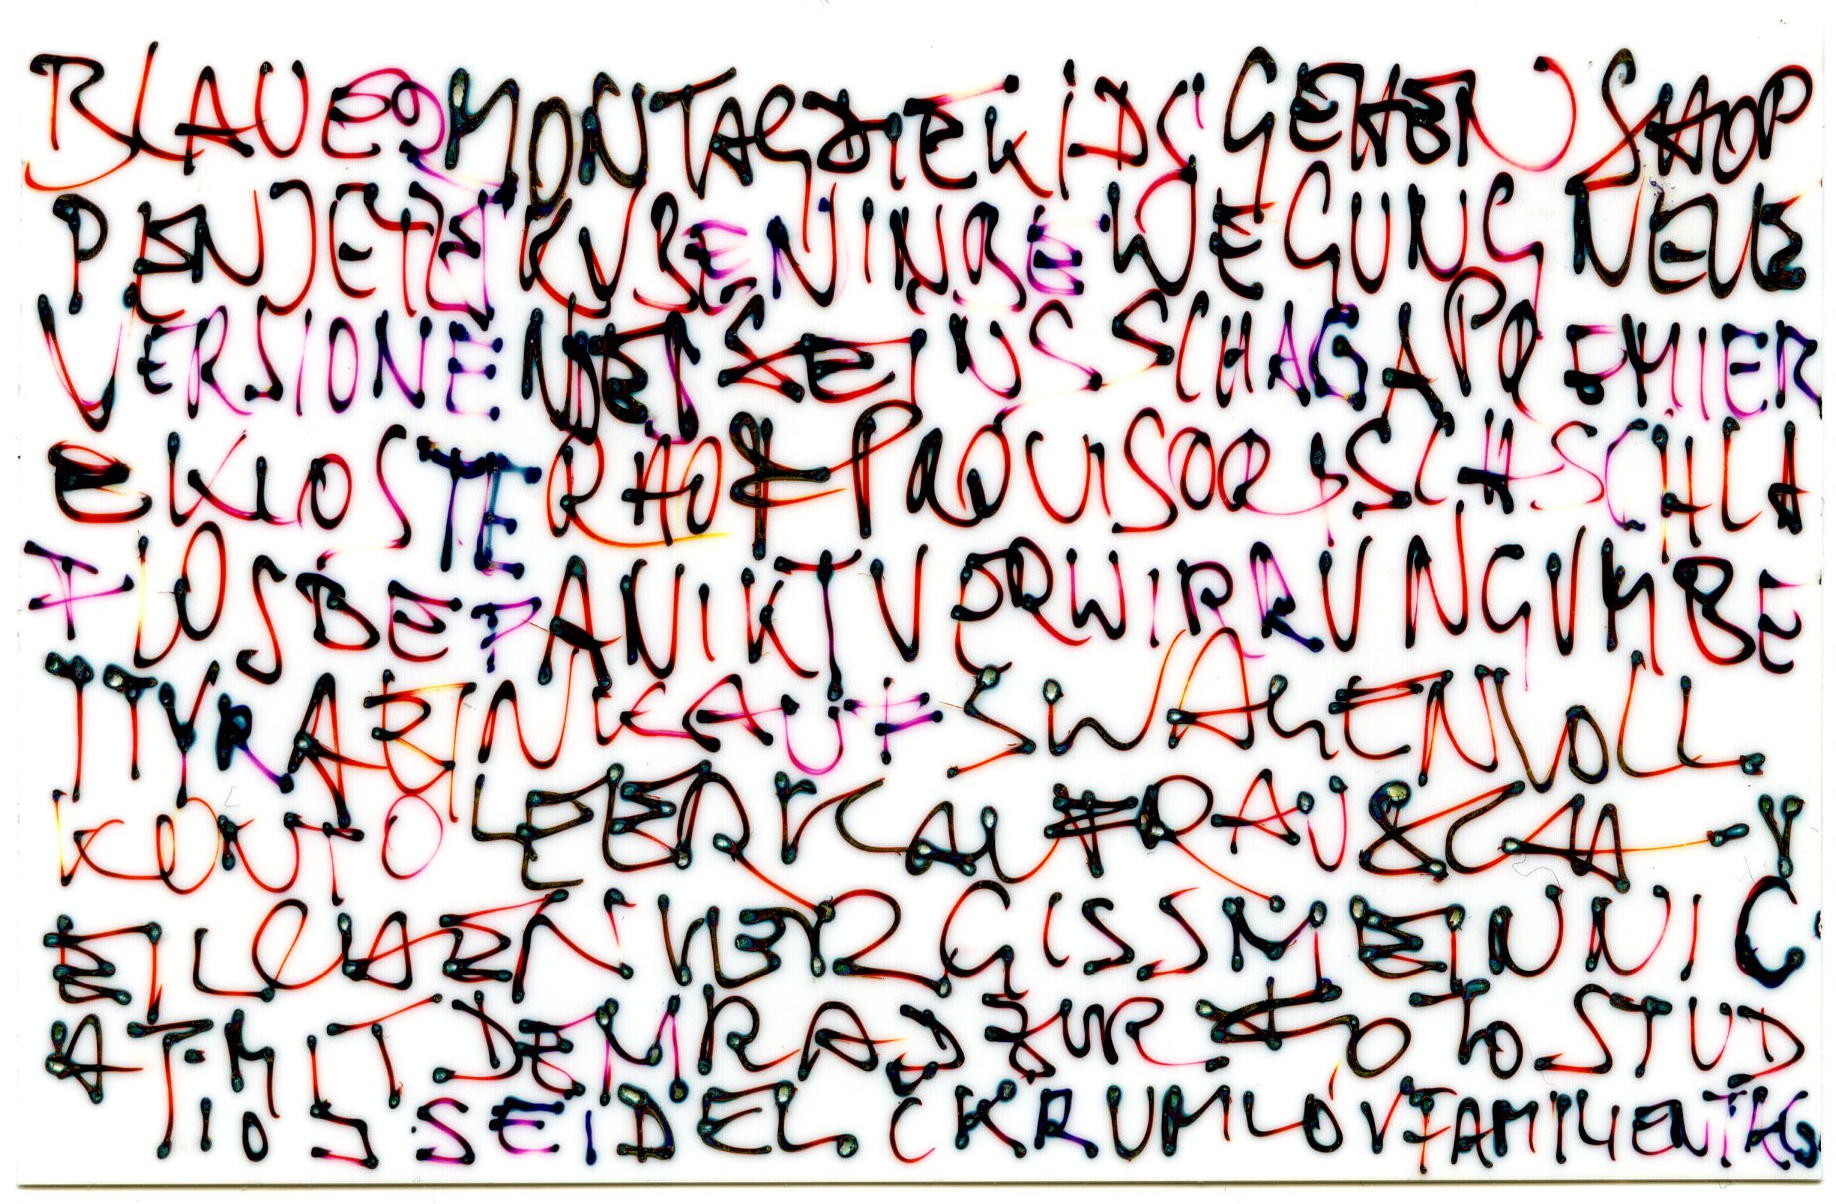 BLAUER MONTAG DIE KIDS GEHEN SHOP
PEN JETZT KUBEN IN BEWEGUNG NEUE
VERSIONEN DES SEINS SCHAGAP PREMIER
E KLOSTERHOF PROVISORISCH SCHLA
FLOS BEPANIKT VERWIRRUNG UM BE
ITYRA EINKAUFSWAGEN VOLL
KONTO LEER KAUFRAUSCH V
EILCHEN VERGISSMEINNIC
AT MIT DEM RAD ZUR FOTO STUD
IO J SEIDEL C KRUMLÓV FAMILIENTAG